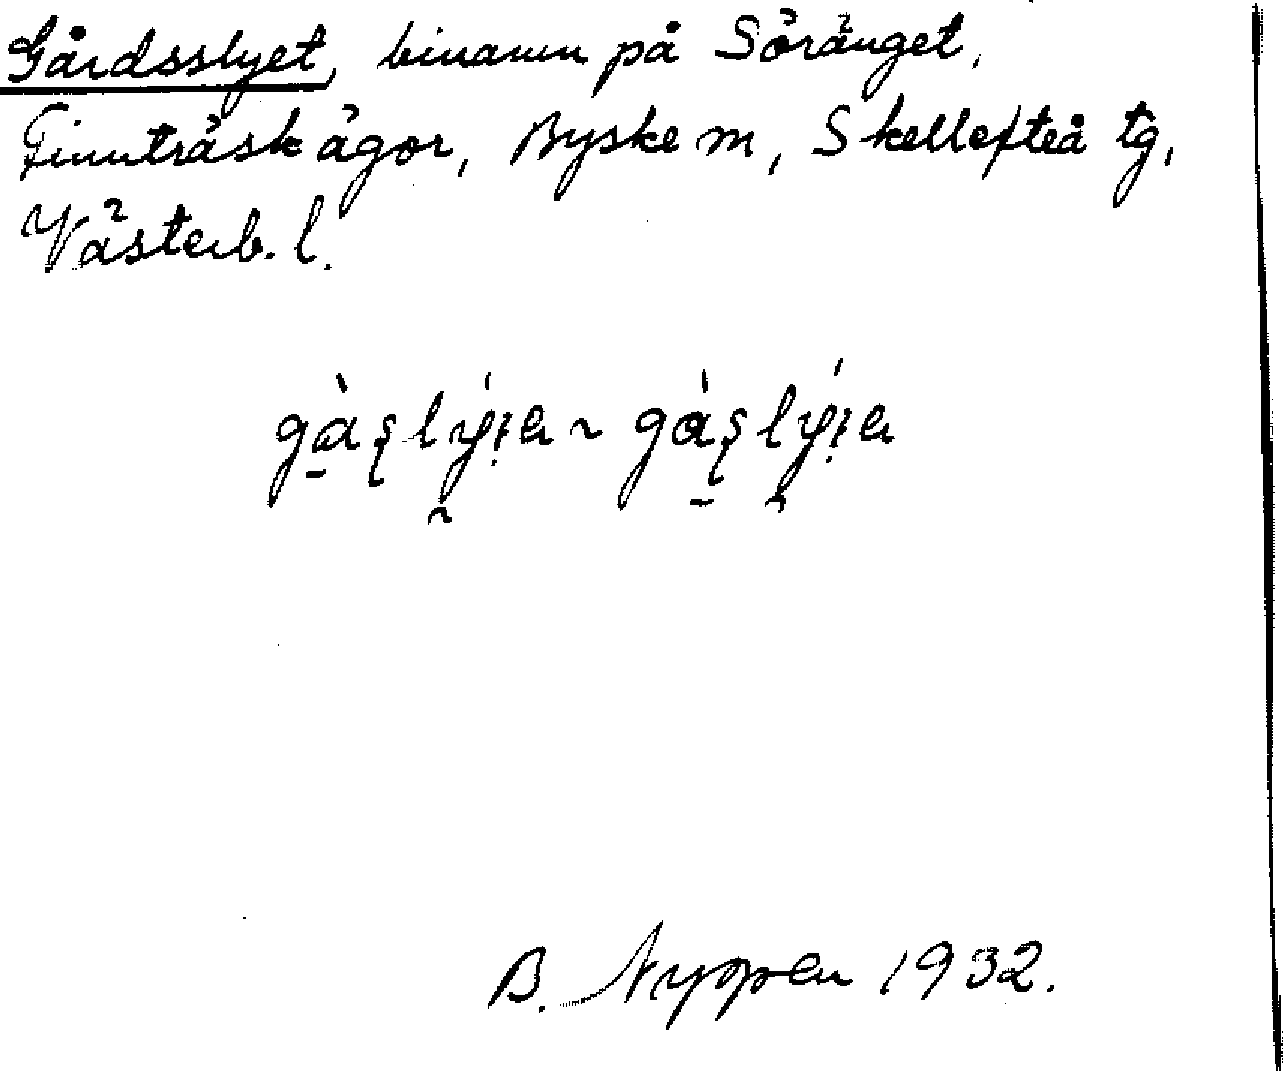 Gårdsslyet, binamn på Söränget,
Finnträskägor, Byske m, Skellefteå tg,
Västerb. l.
B. Nyppen 1932.